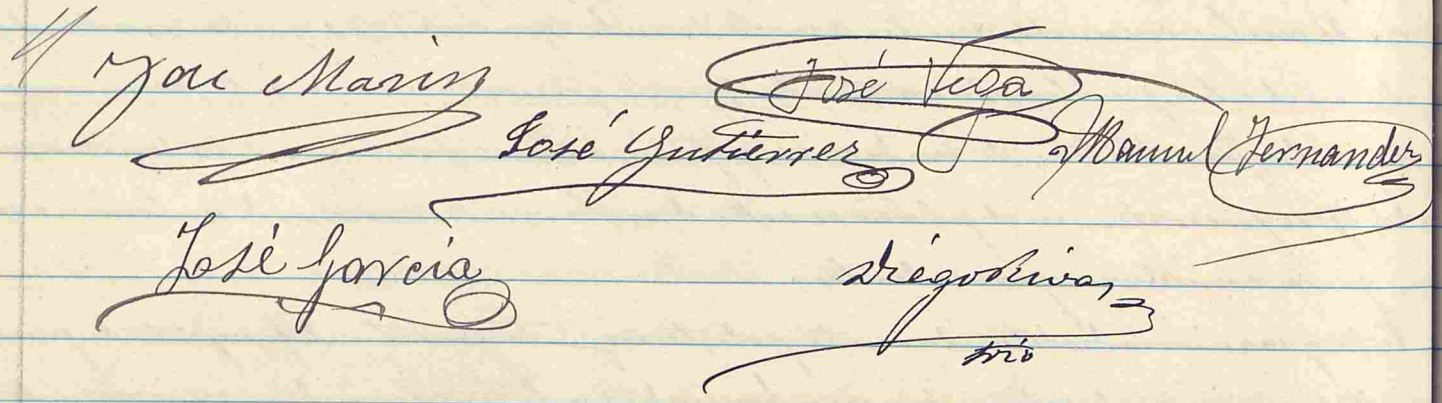 José Marin
José Vega
José Gutiérrez
Manuel Fernandez
José Garcia
Diego Rivas
srio